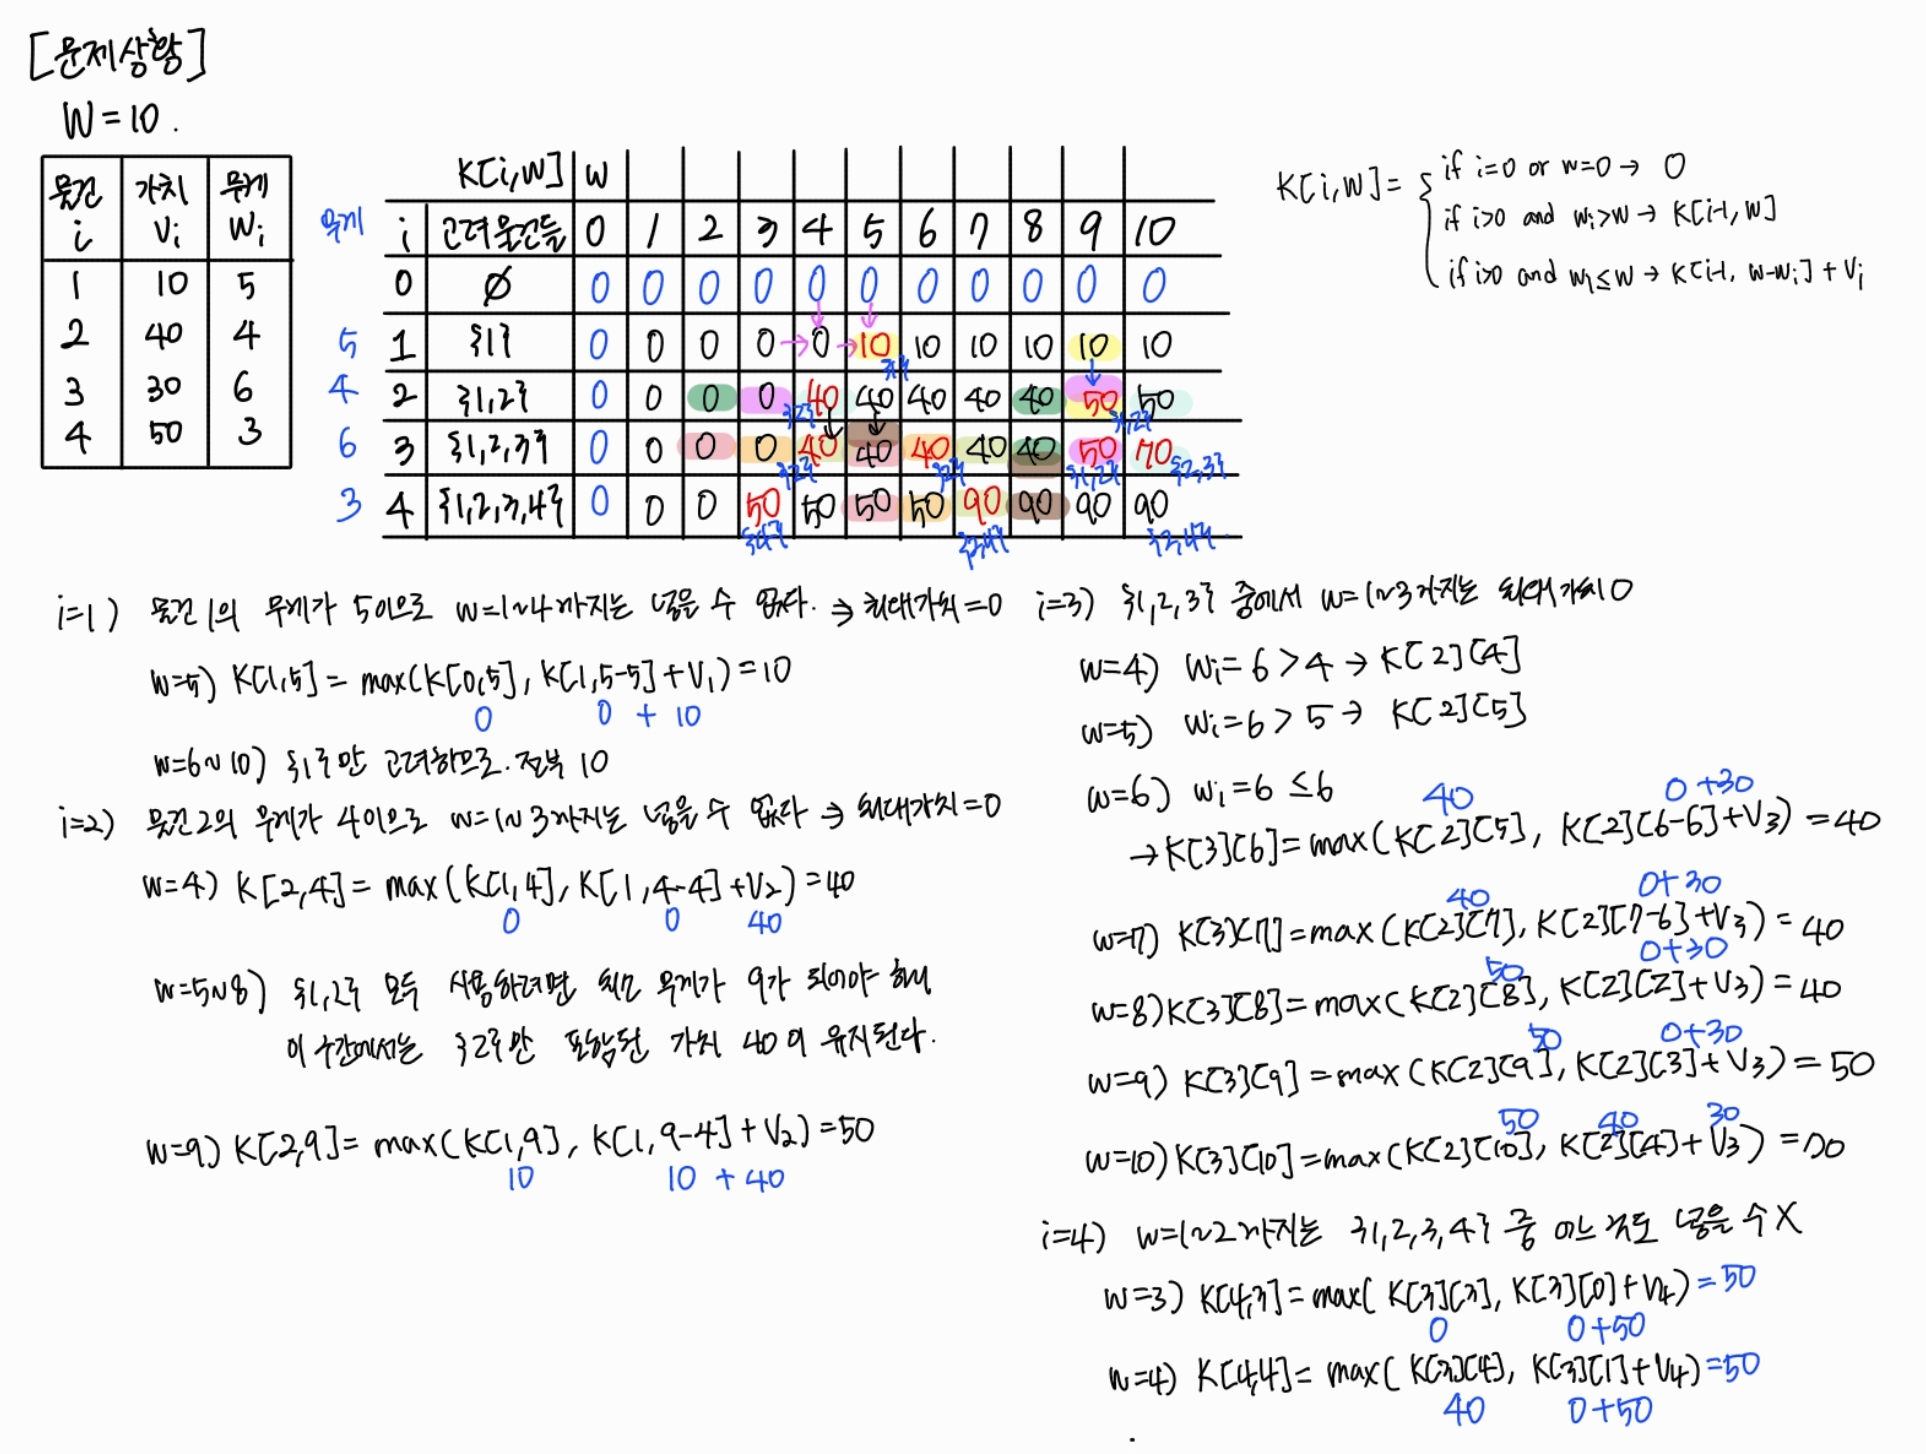 [문제상황]
W = 10.
물건 i | 가치 Vi | 무게 Wi
1 | 10 | 5
2 | 40 | 4
3 | 30 | 6
4 | 50 | 3
K[i,W] | w
무게 | i | 고려물건들 | 0 | 1 | 2 | 3 | 4 | 5 | 6 | 7 | 8 | 9 | 10
0 | ∅ | 0 | 0 | 0 | 0 | 0 | 0 | 0 | 0 | 0 | 0 | 0
5 | 1 | {1} | 0 | 0 | 0 | 0 → 0 → 10 | 10 | 10 | 10 | 10 | 10
{1}
4 | 2 | {1,2} | 0 | 0 | 0 | 0 | 40 | 40 | 40 | 40 | 40 | 50 | 50
{2} {1,2}
6 | 3 | {1,2,3} | 0 | 0 | 0 | 0 | 40 | 40 | 40 | 40 | 40 | 50 | 70
{2} {2} {1,2} {2,3}
3 | 4 | {1,2,3,4} | 0 | 0 | 0 | 50 | 50 | 50 | 50 | 90 | 90 | 90 | 90
{4} {2,4} {2,4}
K[i,W] = { if i=0 or w=0 → 0
if i>0 and wi>w → K[i-1, W]
if i>0 and wi≤w → K[i-1, w-wi] + Vi
i=1) 물건 1의 무게가 5이므로 w=1~4까지는 넣을 수 없다. ⇒ 최대가치=0
w=5) K[1,5] = max(K[0,5], K[1,5-5]+V1) = 10
0 0 + 10
w=6~10) {1}만 고려하므로. 전부 10
i=2) 물건2의 무게가 4이므로 w=1~3까지는 넣을 수 없다 ⇒ 최대가치=0
w=4) K[2,4] = max(K[1,4], K[1,4-4]+V2) = 40
0 0 40
w=5~8) {1,2} 모두 사용하려면 최소 무게가 9가 되어야 해서
이 구간에서는 {2}만 포함된 가치 40이 유지된다.
w=9) K[2,9] = max(K[1,9], K[1,9-4]+V2) = 50
10 10 + 40
i=3) {1,2,3} 중에서 w=1~3까지는 최대가치 0
w=4) Wi = 6 > 4 → K[2][4]
w=5) Wi = 6 > 5 → K[2][5]
w=6) Wi = 6 ≤ 6
40 0+30
→ K[3][6] = max(K[2][5], K[2][6-6]+V3) = 40
40 0+30
w=7) K[3][7] = max(K[2][7], K[2][7-6]+V3) = 40
50 0+30
w=8) K[3][8] = max(K[2][8], K[2][2]+V3) = 40
50 0+30
w=9) K[3][9] = max(K[2][9], K[2][3]+V3) = 50
50 40 30
w=10) K[3][10] = max(K[2][10], K[2][4]+V3) = 70
i=4) w=1~2까지는 {1,2,3,4} 중 어느 것도 넣을 수 X
w=3) K[4,3] = max(K[3][3], K[3][0]+V4) = 50
0 0+50
w=4) K[4,4] = max(K[3][4], K[3][1]+V4) = 50
40 0+50